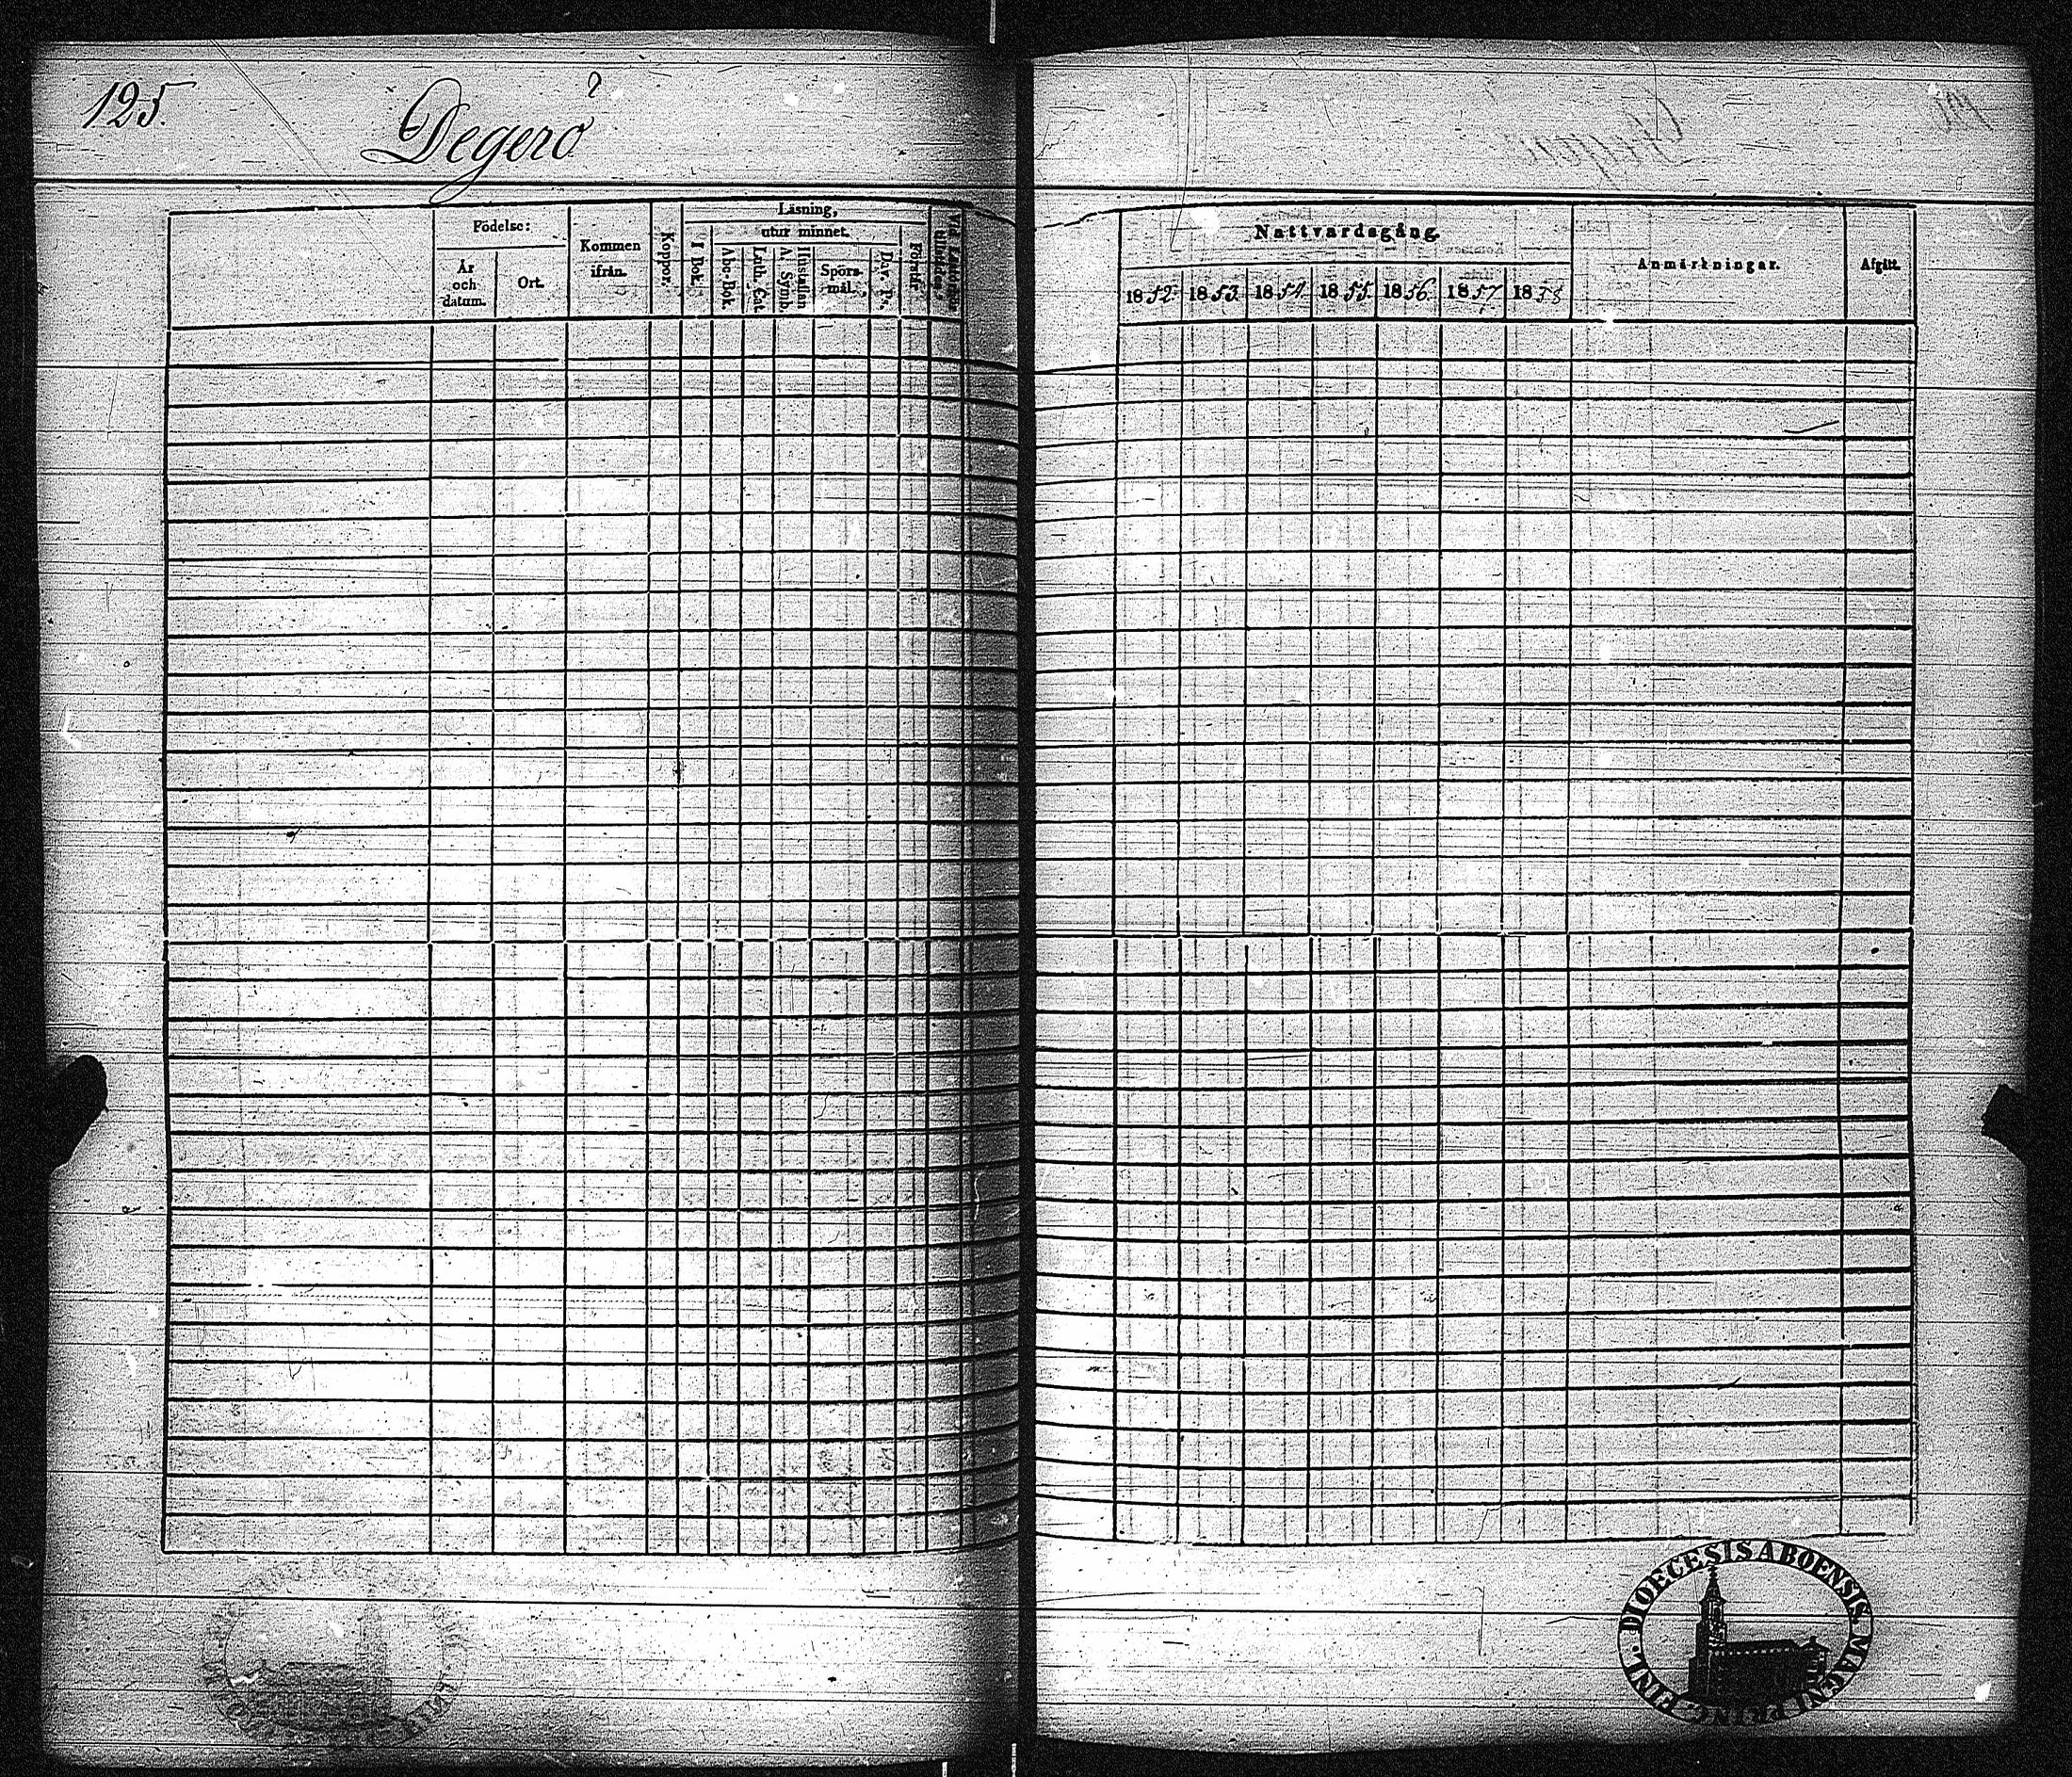 125.
Degerö
Födelse:
År och datum.
Ort.
Kommen ifrån.
Koppor.
Läsning,
utur minnet.
I Bok.
Abc-Bok.
Luth. Cat.
A. Symb.
Hustaflan
Spörsmål.
Dav. Ps.
Förstår
Nattvardsgång.
1852. 1853. 1854. 1855. 1856. 1857. 1858
Anmärkningar.
Afgått.
DIOECESIS ABOENSIS MAGNI PRINC. FINL.